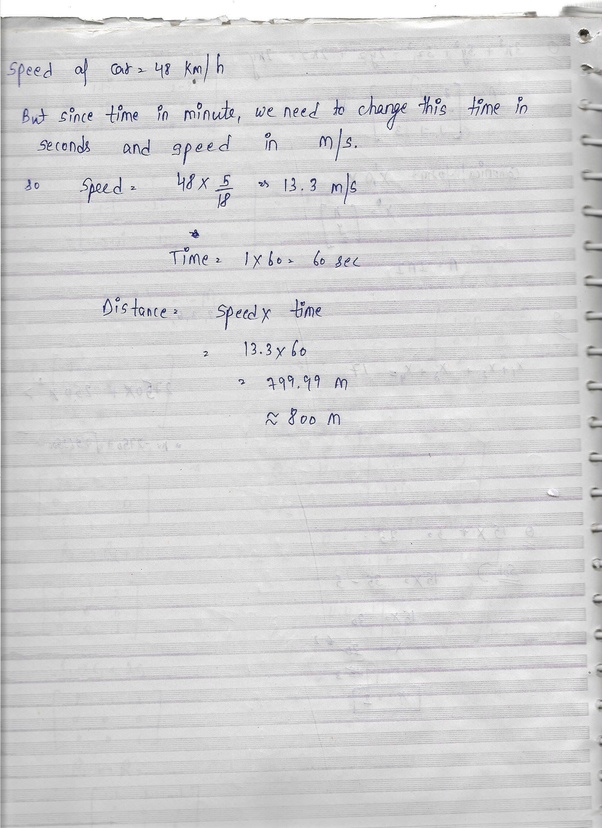 Speed of car = 48 km/h
But since time in minute, we need to change this time in
seconds and speed in m/s.
so Speed = 48 × 5/18 => 13.3 m/s
Time = 1 × 60 = 60 sec
Distance = Speed × time
= 13.3 × 60
= 799.99 m
≈ 800 m